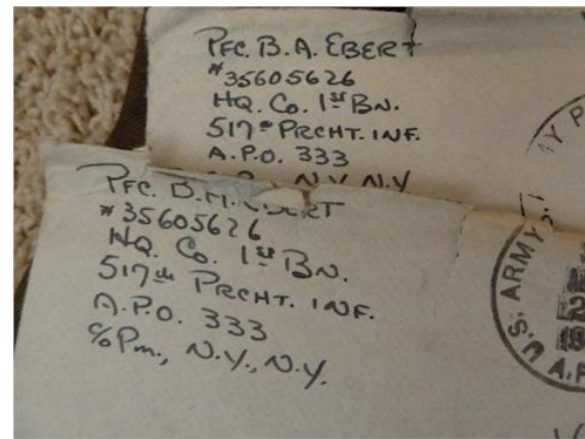 PFC. B.A. EBERT
#35605626
HQ. Co. 1st BN.
517th PRCHT. INF.
A.P.O. 333
N.Y. N.Y.
PFC.
#35605626
HQ. Co. 1st BN.
517th PRCHT. INF.
A.P.O. 333
c/o Pm., N.Y., N.Y.
U.S. ARMY